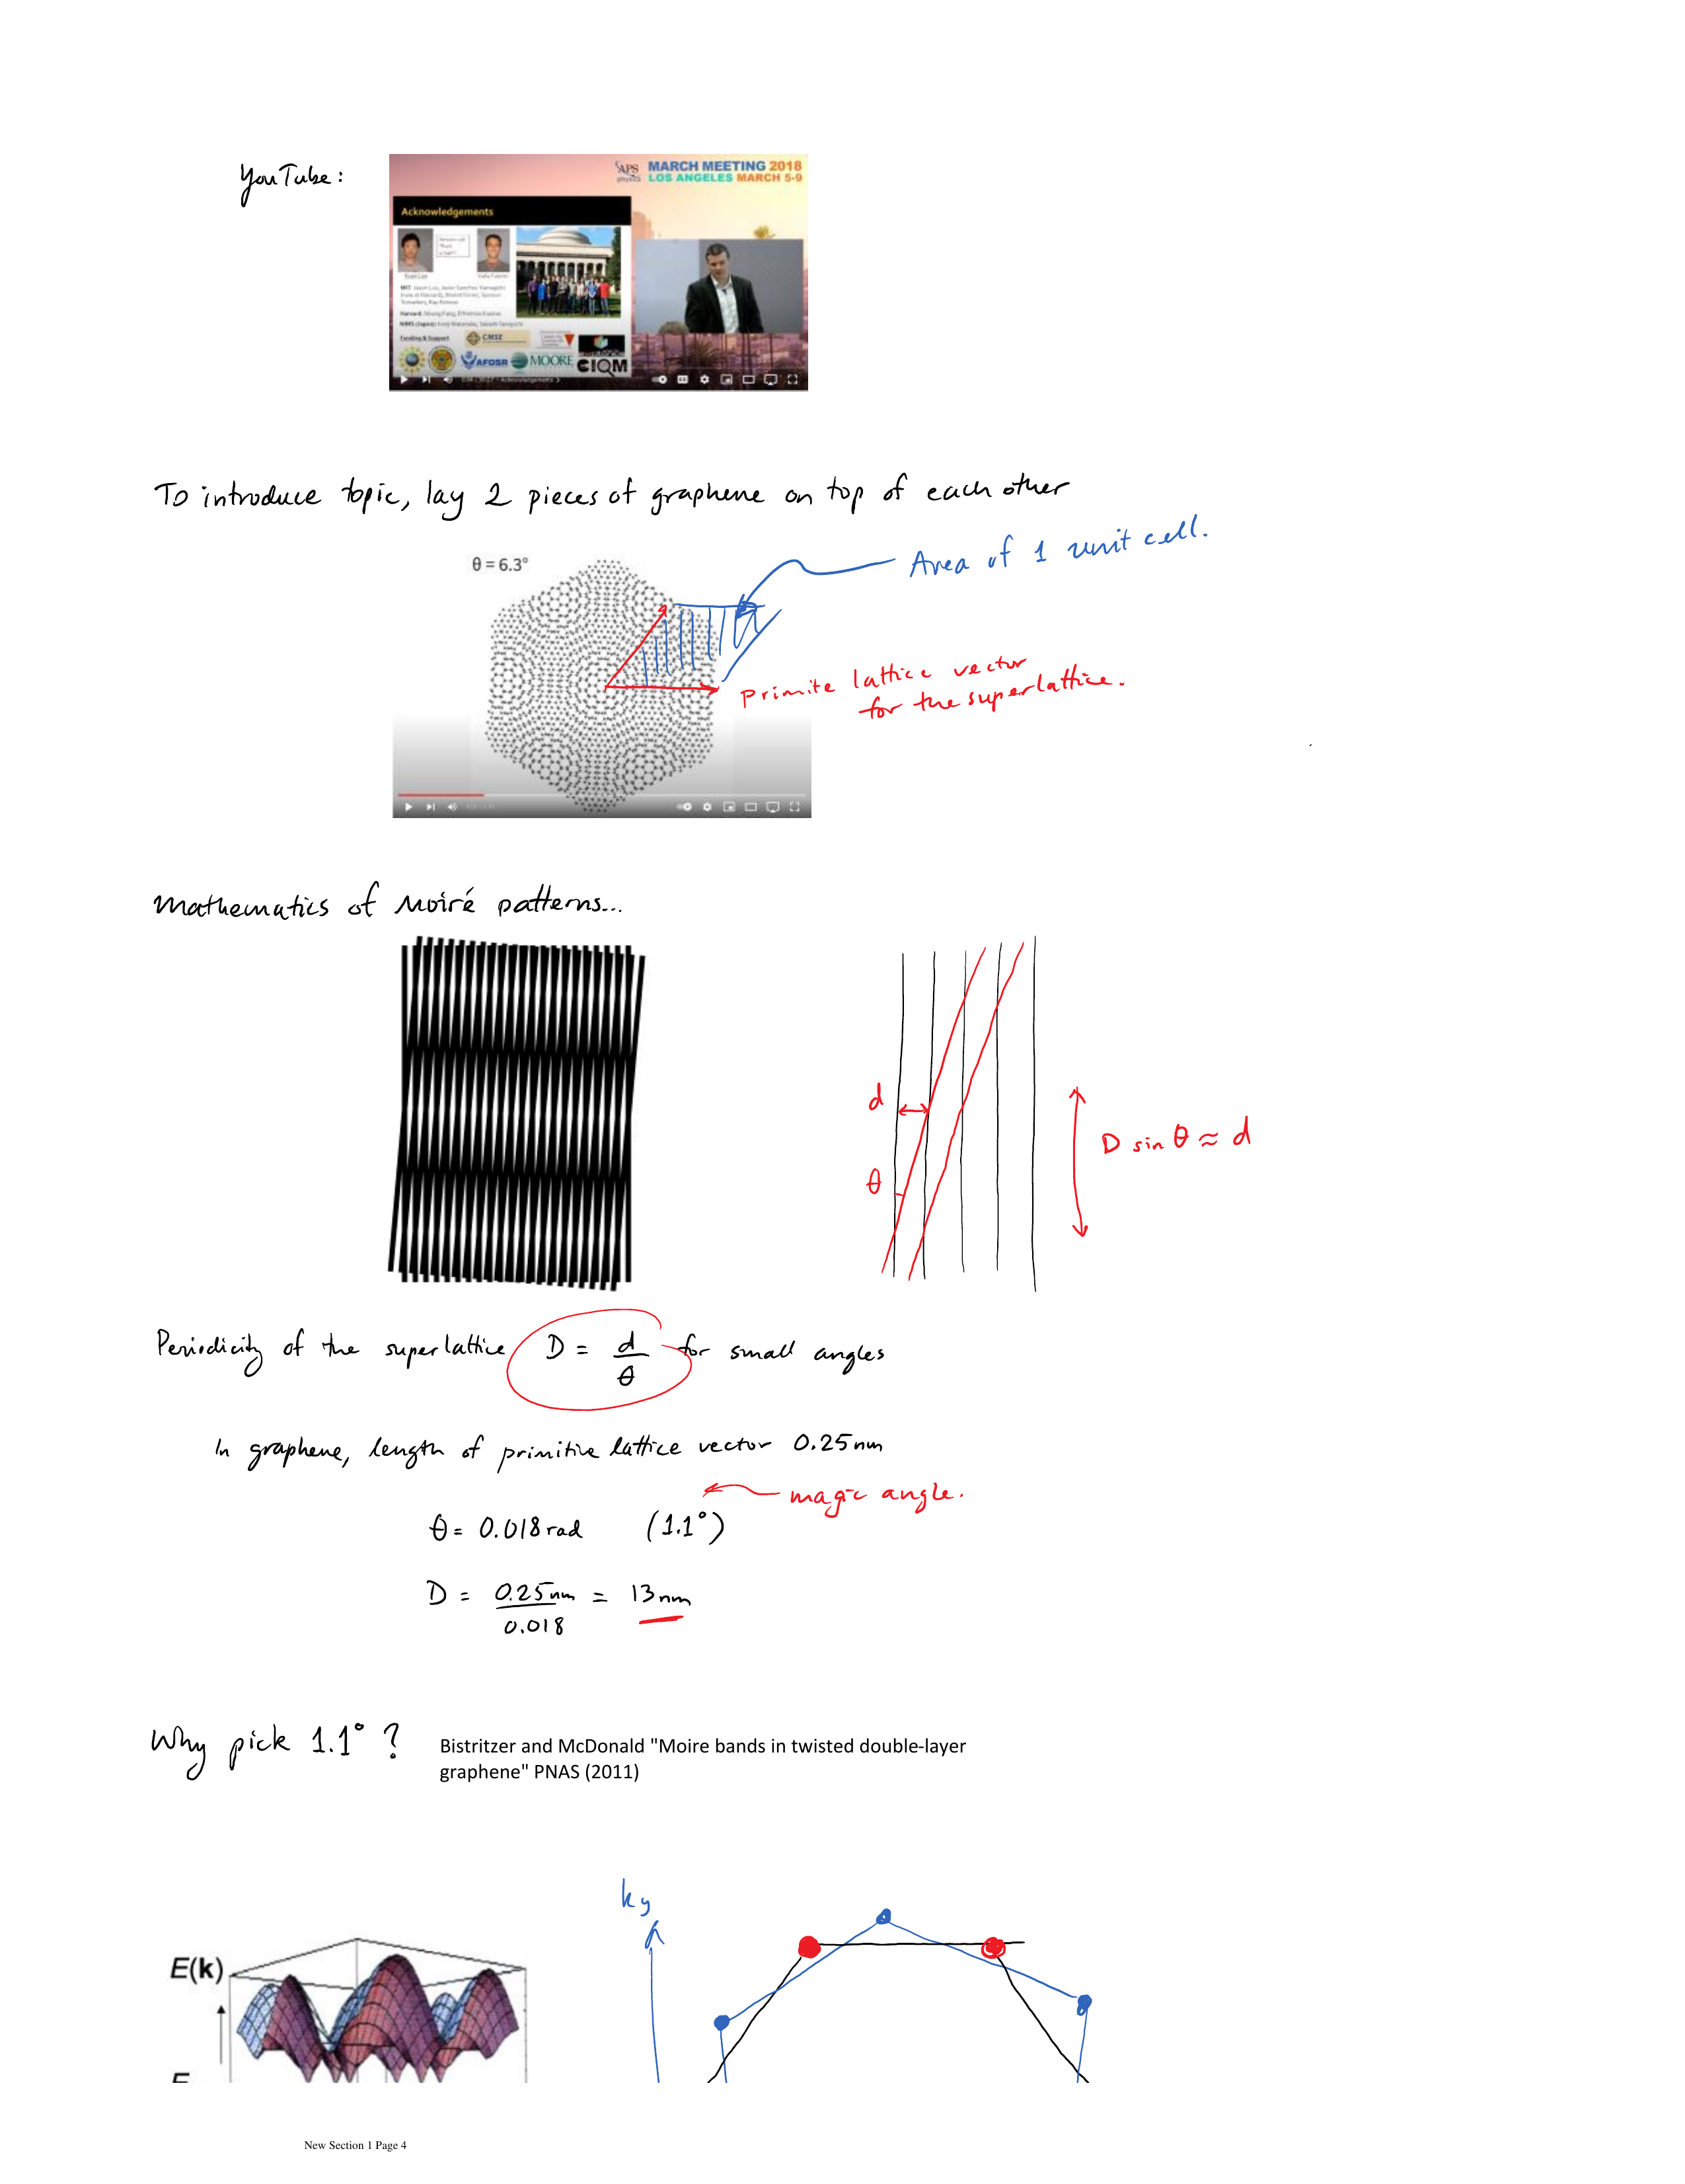 YouTube:
APS physics MARCH MEETING 2018
LOS ANGELES MARCH 5-9
Acknowledgements
CMSE
AFOSR MOORE CIQM
To introduce topic, lay 2 pieces of graphene on top of each other
θ = 6.3°
Area of 1 unit cell.
primite lattice vector
for the superlattice.
Mathematics of Moiré patterns...
d
θ
D sin θ ≈ d
Periodicity of the superlattice D = d/θ for small angles
In graphene, length of primitive lattice vector 0.25nm
magic angle.
θ = 0.018 rad (1.1°)
D = 0.25nm / 0.018 = 13nm
Why pick 1.1° ?
Bistritzer and McDonald "Moire bands in twisted double-layer
graphene" PNAS (2011)
ky
E(k)
New Section 1 Page 4